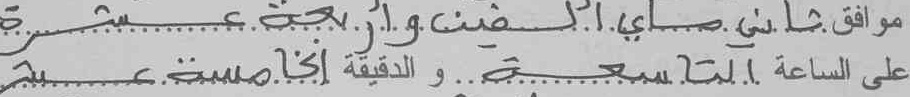 موافق ثاني ماي ألفين وأربعة عشرة
على الساعة التاسعة و الدقيقة الخامسة عشر